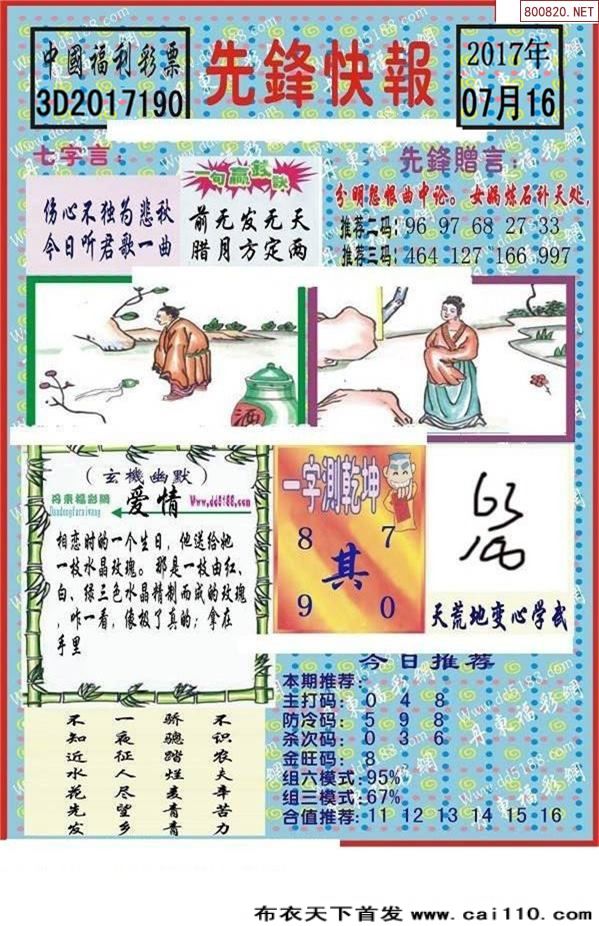 800820.NET
中國福利彩票
3D2017190
先鋒快報
2017年
07月16
七字言:
伤心不独为悲秋
今日听君歌一曲
一句赢钱诀
前无发无天
腊月方定两
先鋒贈言:
分明怨恨曲中论。女娲炼石补天处,
推荐二码: 96 97 68 27 33
推荐三码: 464 127 166 997
酒
(玄機幽默)
丹東福彩网
Dandongfucaiwang
爱情
Www.dd5188.com
相恋时的一个生日,他送给她
一枝水晶玫瑰。那是一枝由红、
白、绿三色水晶精制而成的玫瑰
,咋一看,像极了真的;拿在
手里
一字测乾坤
8 7
其
9 0
天荒地变心学武
不识农夫辛苦力
骄骢踏烂麦青青
一夜征人尽望乡
不知近水花先发
今日推荐
本期推荐:
主打码: 0 4 8
防冷码: 5 9 8
杀次码: 0 3 6
金旺码: 8
组六模式: 95%
组三模式: 67%
合值推荐: 11 12 13 14 15 16
布衣天下首发 www.cai110.com